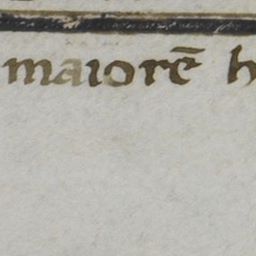 maiorē h